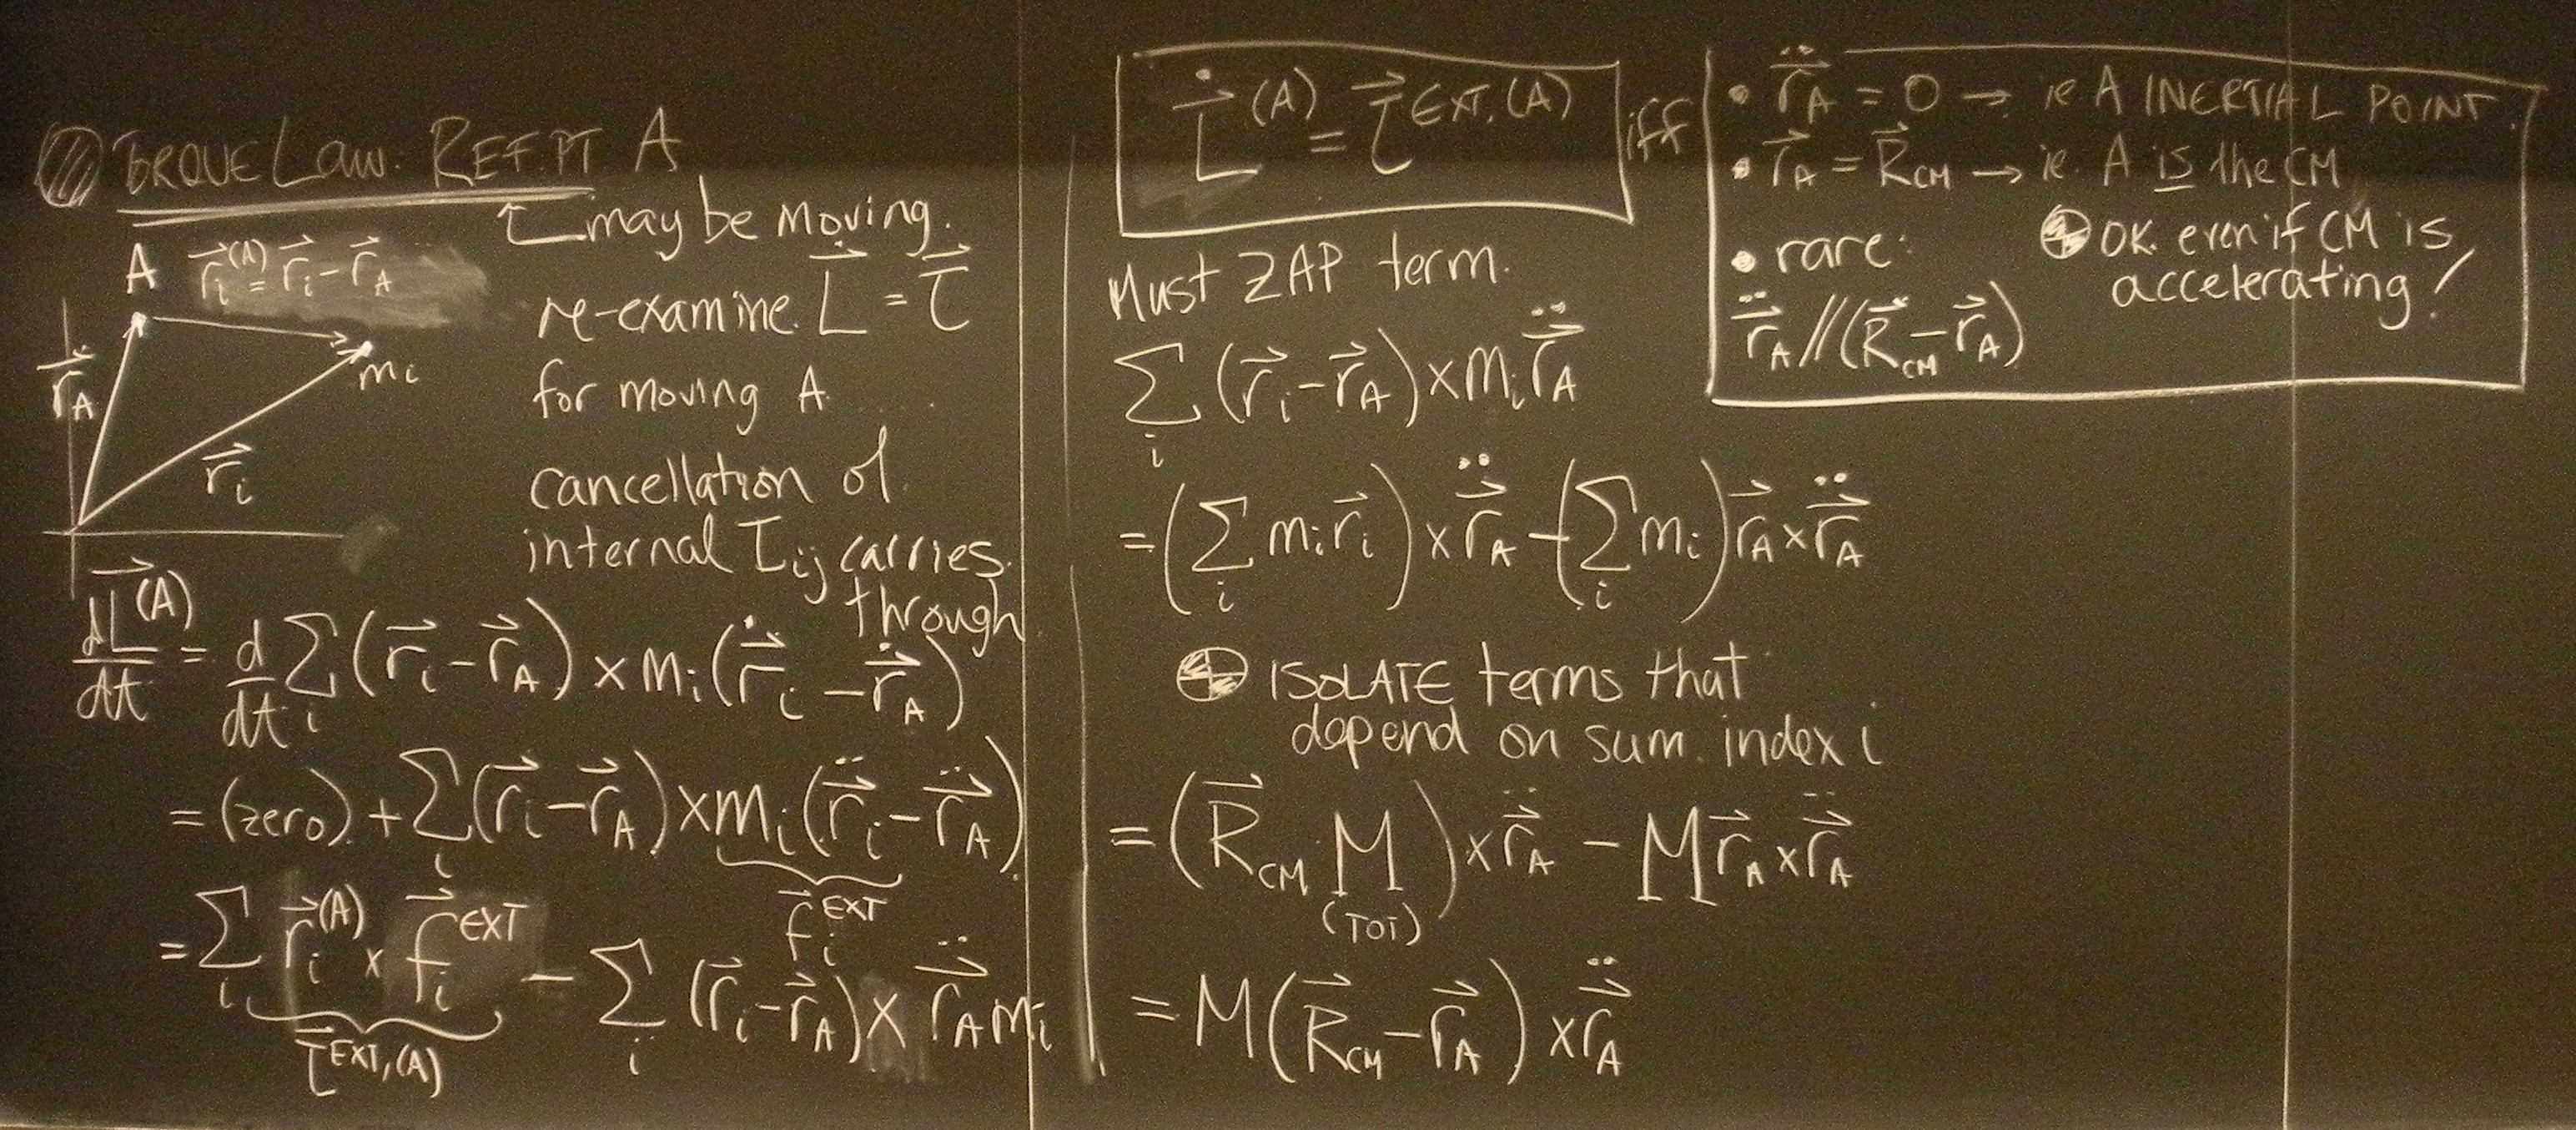 TORQUE Law. REF. PT A
may be moving.
A r⃗ᵢ⁽ᴬ⁾ = r⃗ᵢ - r⃗_A
re-examine L⃗̇ = τ⃗
r⃗_A
mᵢ
for moving A
r⃗ᵢ
cancellation of
internal τᵢⱼ carries
through
dL⃗⁽ᴬ⁾/dt = d/dt Σᵢ (r⃗ᵢ - r⃗_A) × mᵢ (r⃗̇ᵢ - r⃗̇_A)
= (zero) + Σᵢ (r⃗ᵢ - r⃗_A) × mᵢ (r⃗̈ᵢ - r⃗̈_A)
f⃗ᵢ^EXT
= Σᵢ r⃗ᵢ⁽ᴬ⁾ × f⃗ᵢ^EXT - Σᵢ (r⃗ᵢ - r⃗_A) × r⃗̈_A mᵢ
τ⃗^EXT,(A)
L⃗̇⁽ᴬ⁾ = τ⃗^EXT,(A) iff
• r⃗̈_A = 0 → ie A INERTIAL POINT
• r⃗_A = R⃗_CM → ie. A is the CM
OK even if CM is
accelerating!
• rare:
r⃗̈_A // (R⃗_CM - r⃗_A)
Must ZAP term.
Σᵢ (r⃗ᵢ - r⃗_A) × mᵢ r⃗̈_A
= (Σᵢ mᵢ r⃗ᵢ) × r⃗̈_A - (Σᵢ mᵢ) r⃗_A × r⃗̈_A
ISOLATE terms that
depend on sum. index i
= (R⃗_CM M) × r⃗̈_A - M r⃗_A × r⃗̈_A
(TOT)
= M (R⃗_CM - r⃗_A) × r⃗̈_A